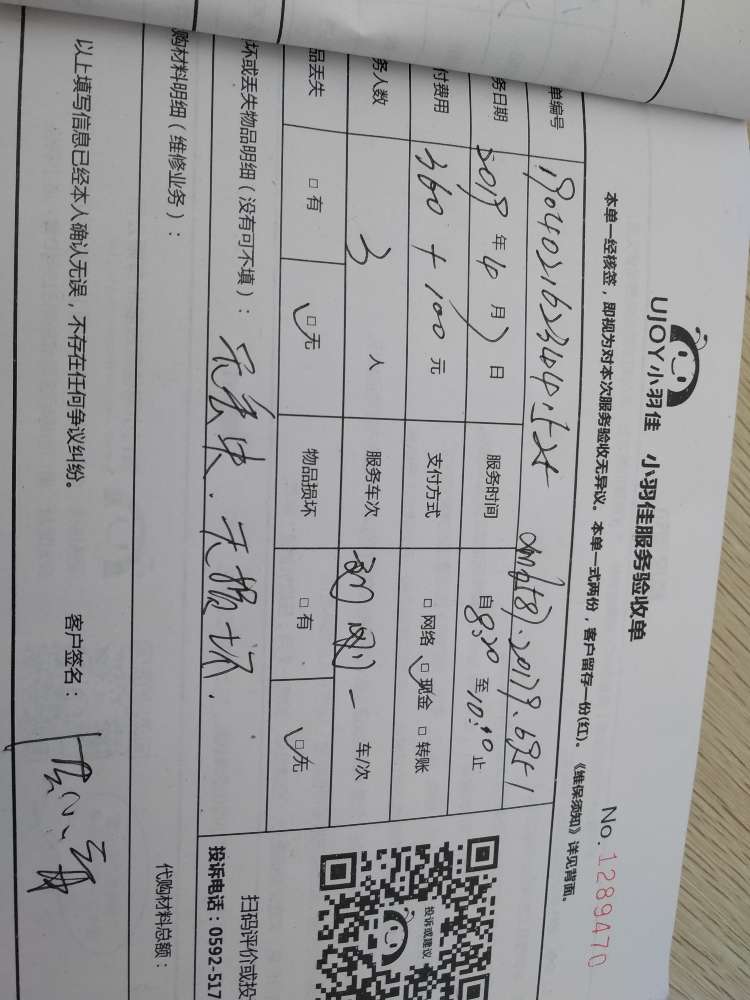 UJOY小羽佳 小羽佳服务验收单
No.1289470
本单一经核签，即视为对本次服务验收无异议。本单一式两份，客户留存一份(红)。《维保须知》详见背面。
单编号
务日期 2019 年 4 月 日 服务时间 自 8:30 至 10:40 止
付费用 360 + 100 元 支付方式 □ 网络 □ 现金 □ 转账
务人数 3 人 服务车次 一 车/次
品丢失 □ 有 □ 无 物品损坏 □ 有 □ 无
坏或丢失物品明细（没有可不填）： 无丢失．无损坏．
购材料明细（维修业务）： 代购材料总额：
以上填写信息已经本人确认无误，不存在任何争议纠纷。 客户签名：
投诉或建议
扫码评价或投
投诉电话：0592-517